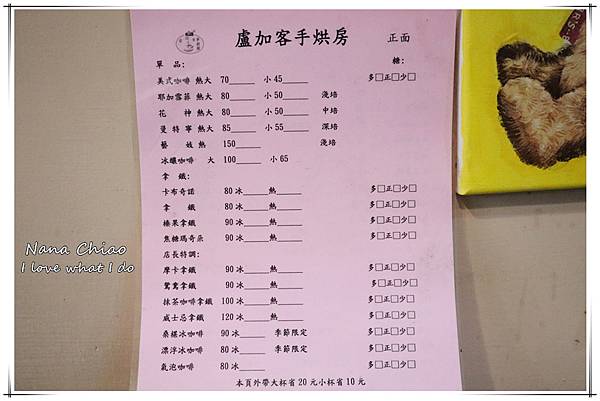 盧加客手烘房 正面
單 品: 糖:
美式咖啡 熱大 70____ 小 45____ 多□正□少□
耶加雪菲 熱大 80____ 小 50____ 淺培
花 神 熱大 80____ 小 50____ 中培
曼特寧 熱大 85____ 小 55____ 深培
藝 妓 熱 150____ 淺培
冰釀咖啡 大 100____ 小 65
拿 鐵:
卡布奇諾 80 冰____熱____ 多□正□少□
拿 鐵 80 冰____熱____ 多□正□少□
榛果拿鐵 90 冰____熱____ 多□正□少□
焦糖瑪奇朵 90 冰____熱____ 多□正□少□
店長特調:
摩卡拿鐵 90 冰____熱____ 多□正□少□
鴛鴦拿鐵 90 冰____熱____ 多□正□少□
抹茶咖啡拿鐵 100 冰____熱____ 多□正□少□
威士忌拿鐵 120 冰____熱____ 多□正□少□
桑椹冰咖啡 90 冰____ 季節限定 多□正□少□
漂浮冰咖啡 80 冰____ 季節限定 多□正□少□
氣泡咖啡 80 冰____ 多□正□少□
本頁外帶大杯省 20 元小杯省 10 元
Nana Chiao
I love what I do